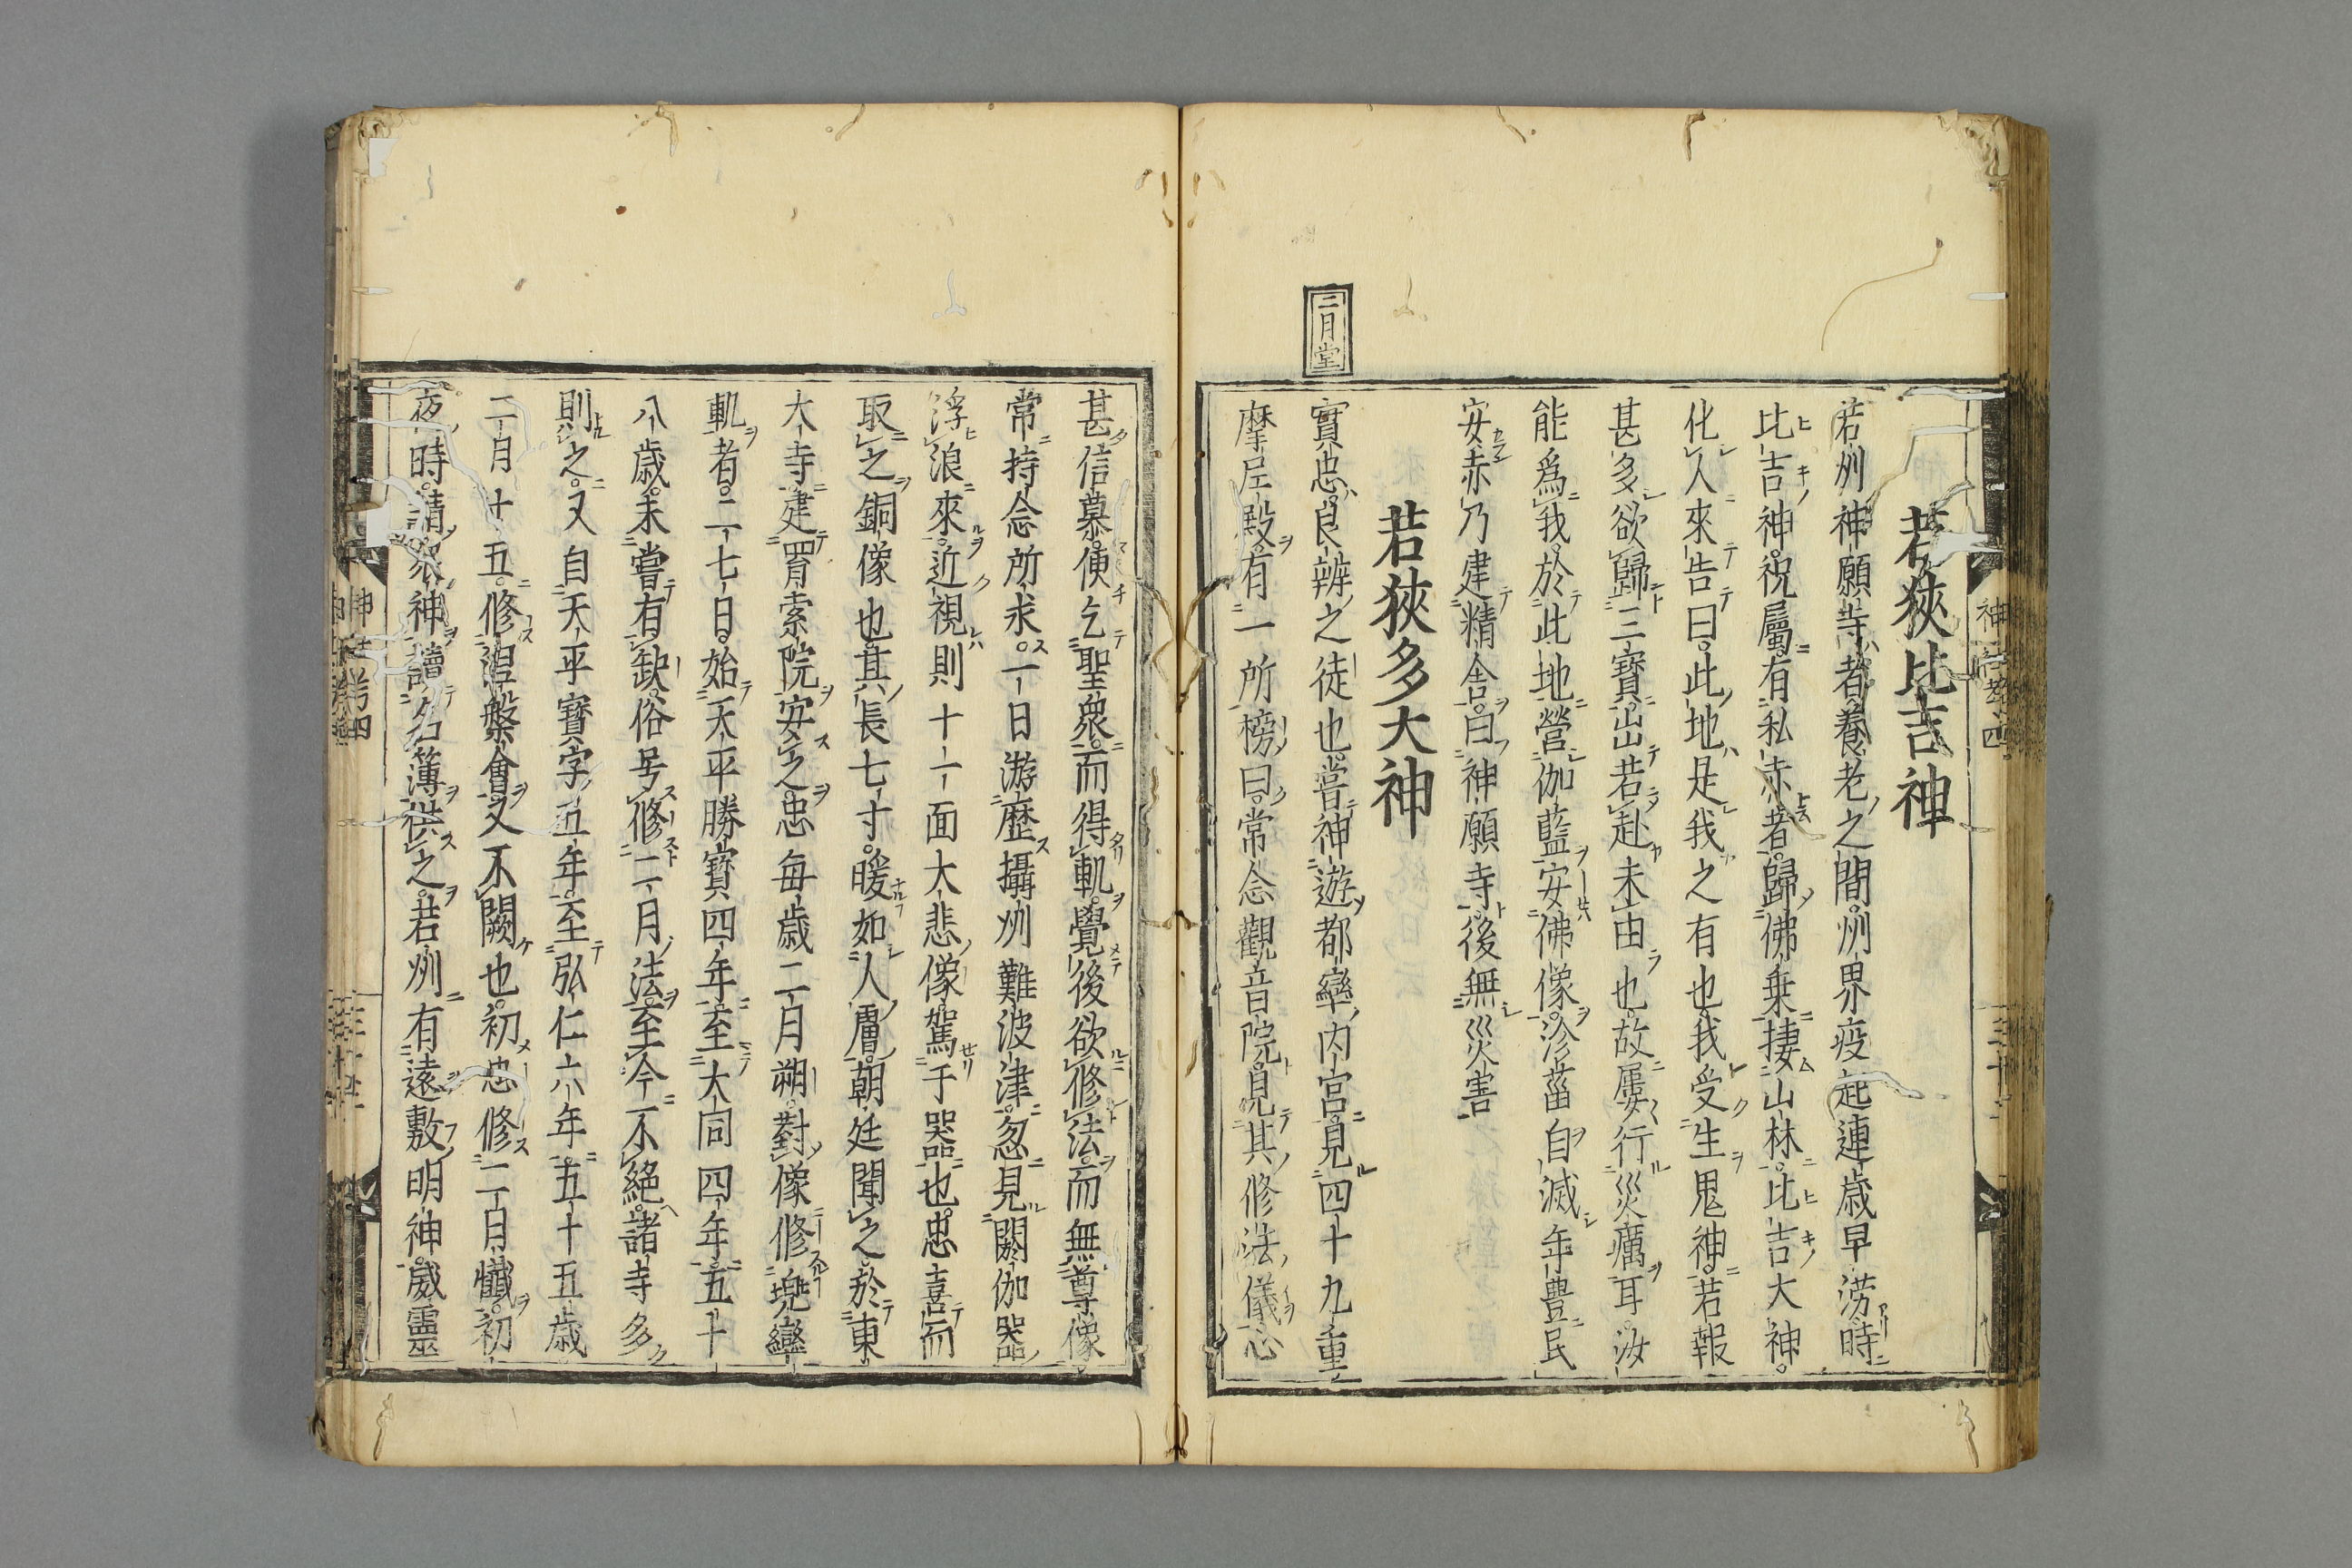 若狹比吉神
若州神願寺者養老之間州界疫起連歳旱澇時
比吉神祝屬有私赤者歸佛乗捿山林比吉大神
化人來告曰此地是我之有也我受生鬼神若報
甚多欲歸三寳出苦赴未由也故屢行災癘耳汝
能爲我於此地營伽藍安佛像沴菑自滅年豊民
安赤乃建精舎曰神願寺後無災害
若狹多大神
二月堂
實忠良辨之徒也嘗神遊都孿内宮見四十九重
摩尼殿有一所榜曰常念觀音院見其修法儀心
甚信慕便乞聖衆而得軌覺後欲修法而無尊像
常持念所求一日游歷攝州難波津忽見閼伽器
浮浪來近視則十一面大悲像駕于器也忠喜而
取之銅像也其長七寸暖如人膚朝廷聞之於東
大寺建罥索院安之忠毎歳二月朔對像修兠孿
軌者二七日始天平勝寳四年至大同四年五十
八歳未嘗有缺俗号修二月法至今不絶諸寺多
則之又自天平寳字五年至弘仁六年五十五歳
二月十五修涅槃會又不闕也初忠修二月懺初
夜時請眾神讀名簿供之若州有遠敷明神威靈